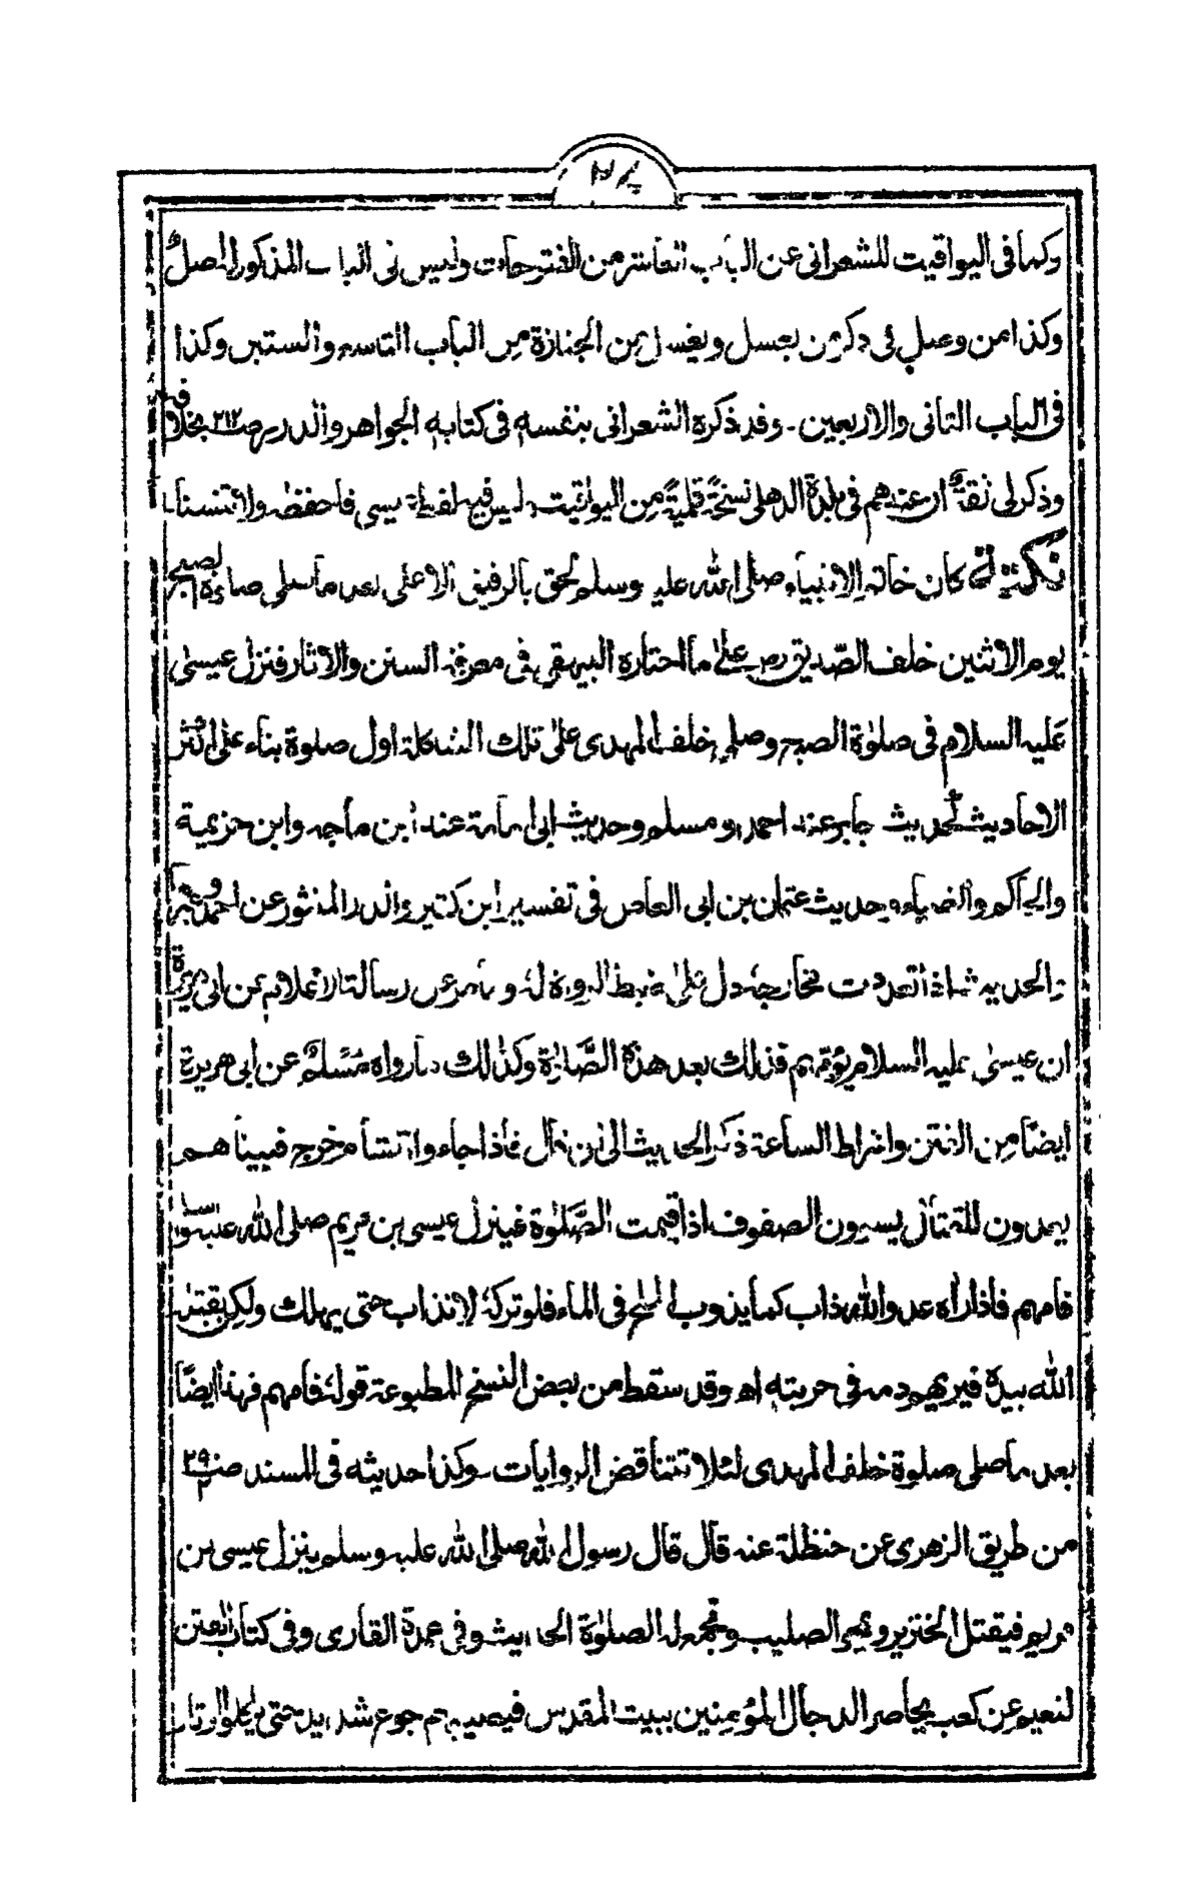 وكما فى اليواقيت للشعرانى عن الباب العاشر من الفتوحات وليس فى الباب المذكور اصلاً
وكذا من وصل فى ذكر من يغسل ويغسل من الجنازة من الباب التاسع والستين وكذا
فى الباب الثانى والاربعين ـ وقد ذكره الشعرانى بنفسه فى كتابه الجواهر والدرر ص٢١٢ بخلافه
وذكر لى ثقة ان عندهم فى بلدة الدهلى نسخةً قلميةً من اليواقيت ليس فيها لفظ عيسى فاحفظه ولا تنسنا
نكتة لما كان خاتم الانبياء صلى الله عليه وسلم لحق بالرفيق الاعلى بعد ما صلى صلوة الصبح
يوم الاثنين خلف الصديق رض على ما اختاره البيهقى فى معرفة السنن والاثار فنزل عيسى
عليه السلام فى صلوة الصبح وصلى خلف المهدى على تلك الشاكلة اول صلوة بناء على اكثر
الاحاديث لحديث جابر عند احمد ومسلم وحديث ابى امامة عند ابن ماجه وابن خزيمة
والحاكم والضياء وحديث عثمان بن ابى العاص فى تفسير ابن كثير والدر المنثور عن احمد وغيره
والحديث اذا تعددت مخارجه دل على ضبط الرواة له و رسالة الاعلام عن ابى هريرة
ان عيسى عليه السلام يؤمهم فذلك بعد هذه الصلوة وكذلك ما رواه مسلم عن ابى هريرة
ايضًا من الفتن واشراط الساعة ذكر الحديث الى ان قال فاذا جاءوا الشأم خرج فبينا هم
يعدون للقتال يسوون الصفوف اذا قيمت الصلوة فينزل عيسى بن مريم صلى الله عليه وسلم
فامهم فاذا راه عدو الله ذاب كما يذوب الملح فى الماء فلو تركه لانذاب حتى يهلك ولكن يقتله
الله بيده فيريهم دمه فى حربته اھ وقد سقط من بعض النسخ المطبوعة قوله فامهم فهذا ايضًا
بعد ما صلى صلوة خلف المهدى لئلا تتناقض الروايات ـ وكذا حديثه فى المسند ص٢٩٠ ٢
من طريق الزهرى عن حنظلة عنه قال قال رسول الله صلى الله عليه وسلم ينزل عيسى بن
مريم فيقتل الخنزير ويمحو الصليب وتجمع له الصلوة الحديث وفى عمدة القارى وفى كتاب الفتن
لنعيم عن كعب يحاصر الدجال المؤمنين ببيت المقدس فيصيبهم جوع شديد حتى ياكلوا اوتار